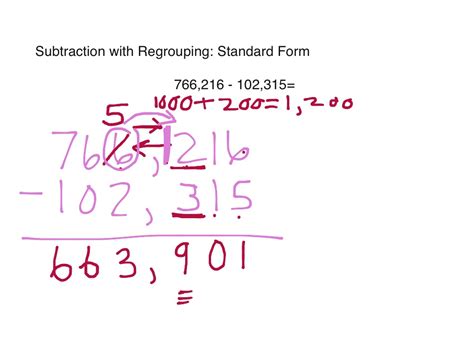 Subtraction with Regrouping: Standard Form
766,216 - 102,315=
5 1000+200=1,200
766,1216
-102,315
663,901